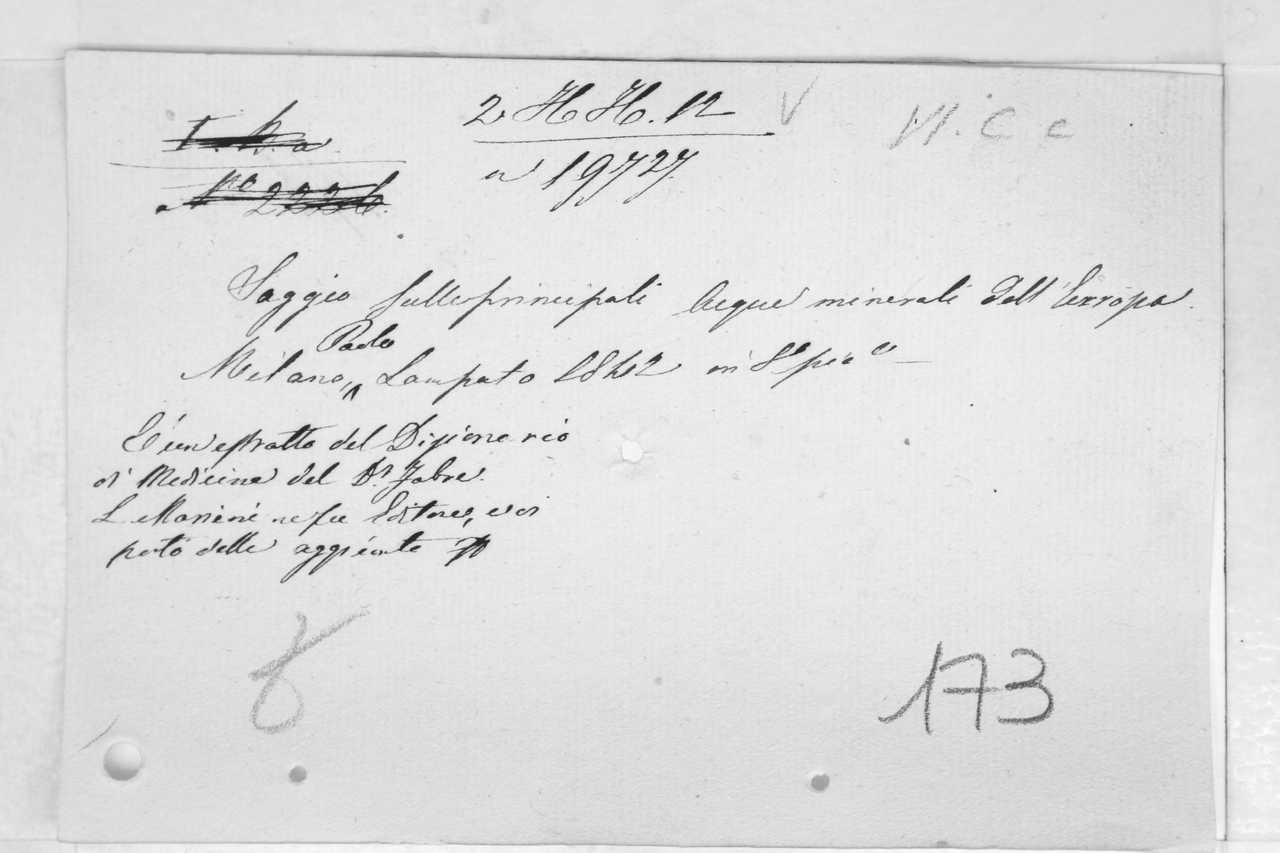 2 H H. 12 V VI. C c
n 19727
Saggio sulle principali Acque minerali dell'Europa.
Paolo
Milano, Lampato 1842 in 8º picº
È un estratto del Dizionario
di Medicina del Dr. Fabre.
L. Marieni ne fu Editore, e vi
portò delle aggiunte
173